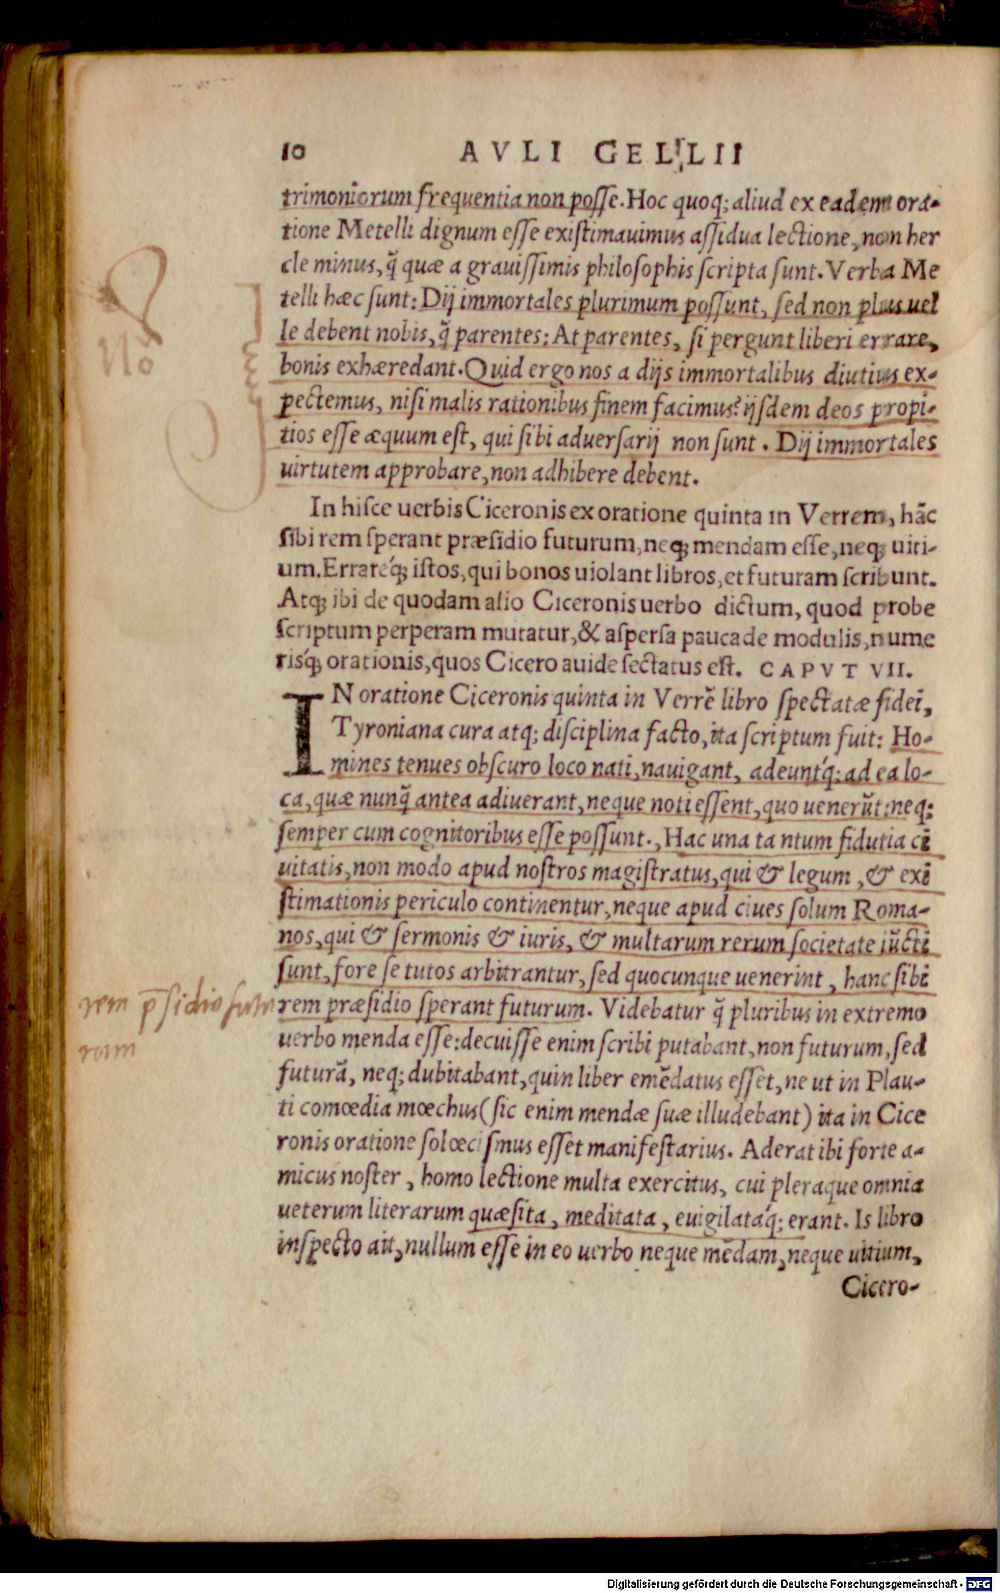 10 AVLI GELLII
trimoniorum frequentia non posse. Hoc quoq; aliud ex eadem ora-
tione Metelli dignum esse existimauimus assidua lectione, non her
cle minus, q̃ quæ a grauissimis philosophis scripta sunt. Verba Me
telli hæc sunt: Dij immortales plurimum possunt, sed non plus uel
le debent nobis, q̃ parentes: At parentes, si pergunt liberi errare,
bonis exhæredant. Quid ergo nos a dijs immortalibus diutius ex-
pectemus, nisi malis rationibus finem facimus? ijsdem deos propi-
tios esse æquum est, qui sibi aduersarij non sunt. Dij immortales
uirtutem approbare, non adhibere debent.
No
In hisce uerbis Ciceronis ex oratione quinta in Verrem, hãc
sibi rem sperant præsidio futurum, neq; mendam esse, neq; uiti-
um. Errareq́; istos, qui bonos uiolant libros, et futuram scribunt.
Atq; ibi de quodam alio Ciceronis uerbo dictum, quod probe
scriptum perperam mutatur, & aspersa pauca de modulis, nume
risq́; orationis, quos Cicero auide sectatus est. CAPVT VII.
IN oratione Ciceronis quinta in Verrẽ libro spectatæ fidei,
Tyroniana cura atq; disciplina facto, ita scriptum fuit: Ho-
mines tenues obscuro loco nati, nauigant, adeuntq́; ad ea lo-
ca, quæ nunq̃ antea adiuerant, neque noti essent, quo uenerũt: neq;
semper cum cognitoribus esse possunt., Hac una tantum fidutia ci
uitatis, non modo apud nostros magistratus, qui & legum, & exi
stimationis periculo continentur, neque apud ciues solum Roma-
nos, qui & sermonis & iuris, & multarum rerum societate iũcti
sunt, fore se tutos arbitrantur, sed quocunque uenerint, hanc sibi
rem præsidio sperant futurum. Videbatur q̃ pluribus in extremo
rem p̄sidio futu
rum
uerbo menda esse: decuisse enim scribi putabant, non futurum, sed
futurã, neq; dubitabant, quin liber emẽdatus esset, ne ut in Plau-
ti comœdia mœchus (sic enim mendæ suæ illudebant) ita in Cice
ronis oratione solœcismus esset manifestarius. Aderat ibi forte a-
micus noster, homo lectione multa exercitus, cui pleraque omnia
ueterum literarum quæsita, meditata, euigilataq́; erant. Is libro
inspecto ait, nullum esse in eo uerbo neque mẽdam, neque uitium,
Cicero-
Digitalisierung gefördert durch die Deutsche Forschungsgemeinschaft - DFG